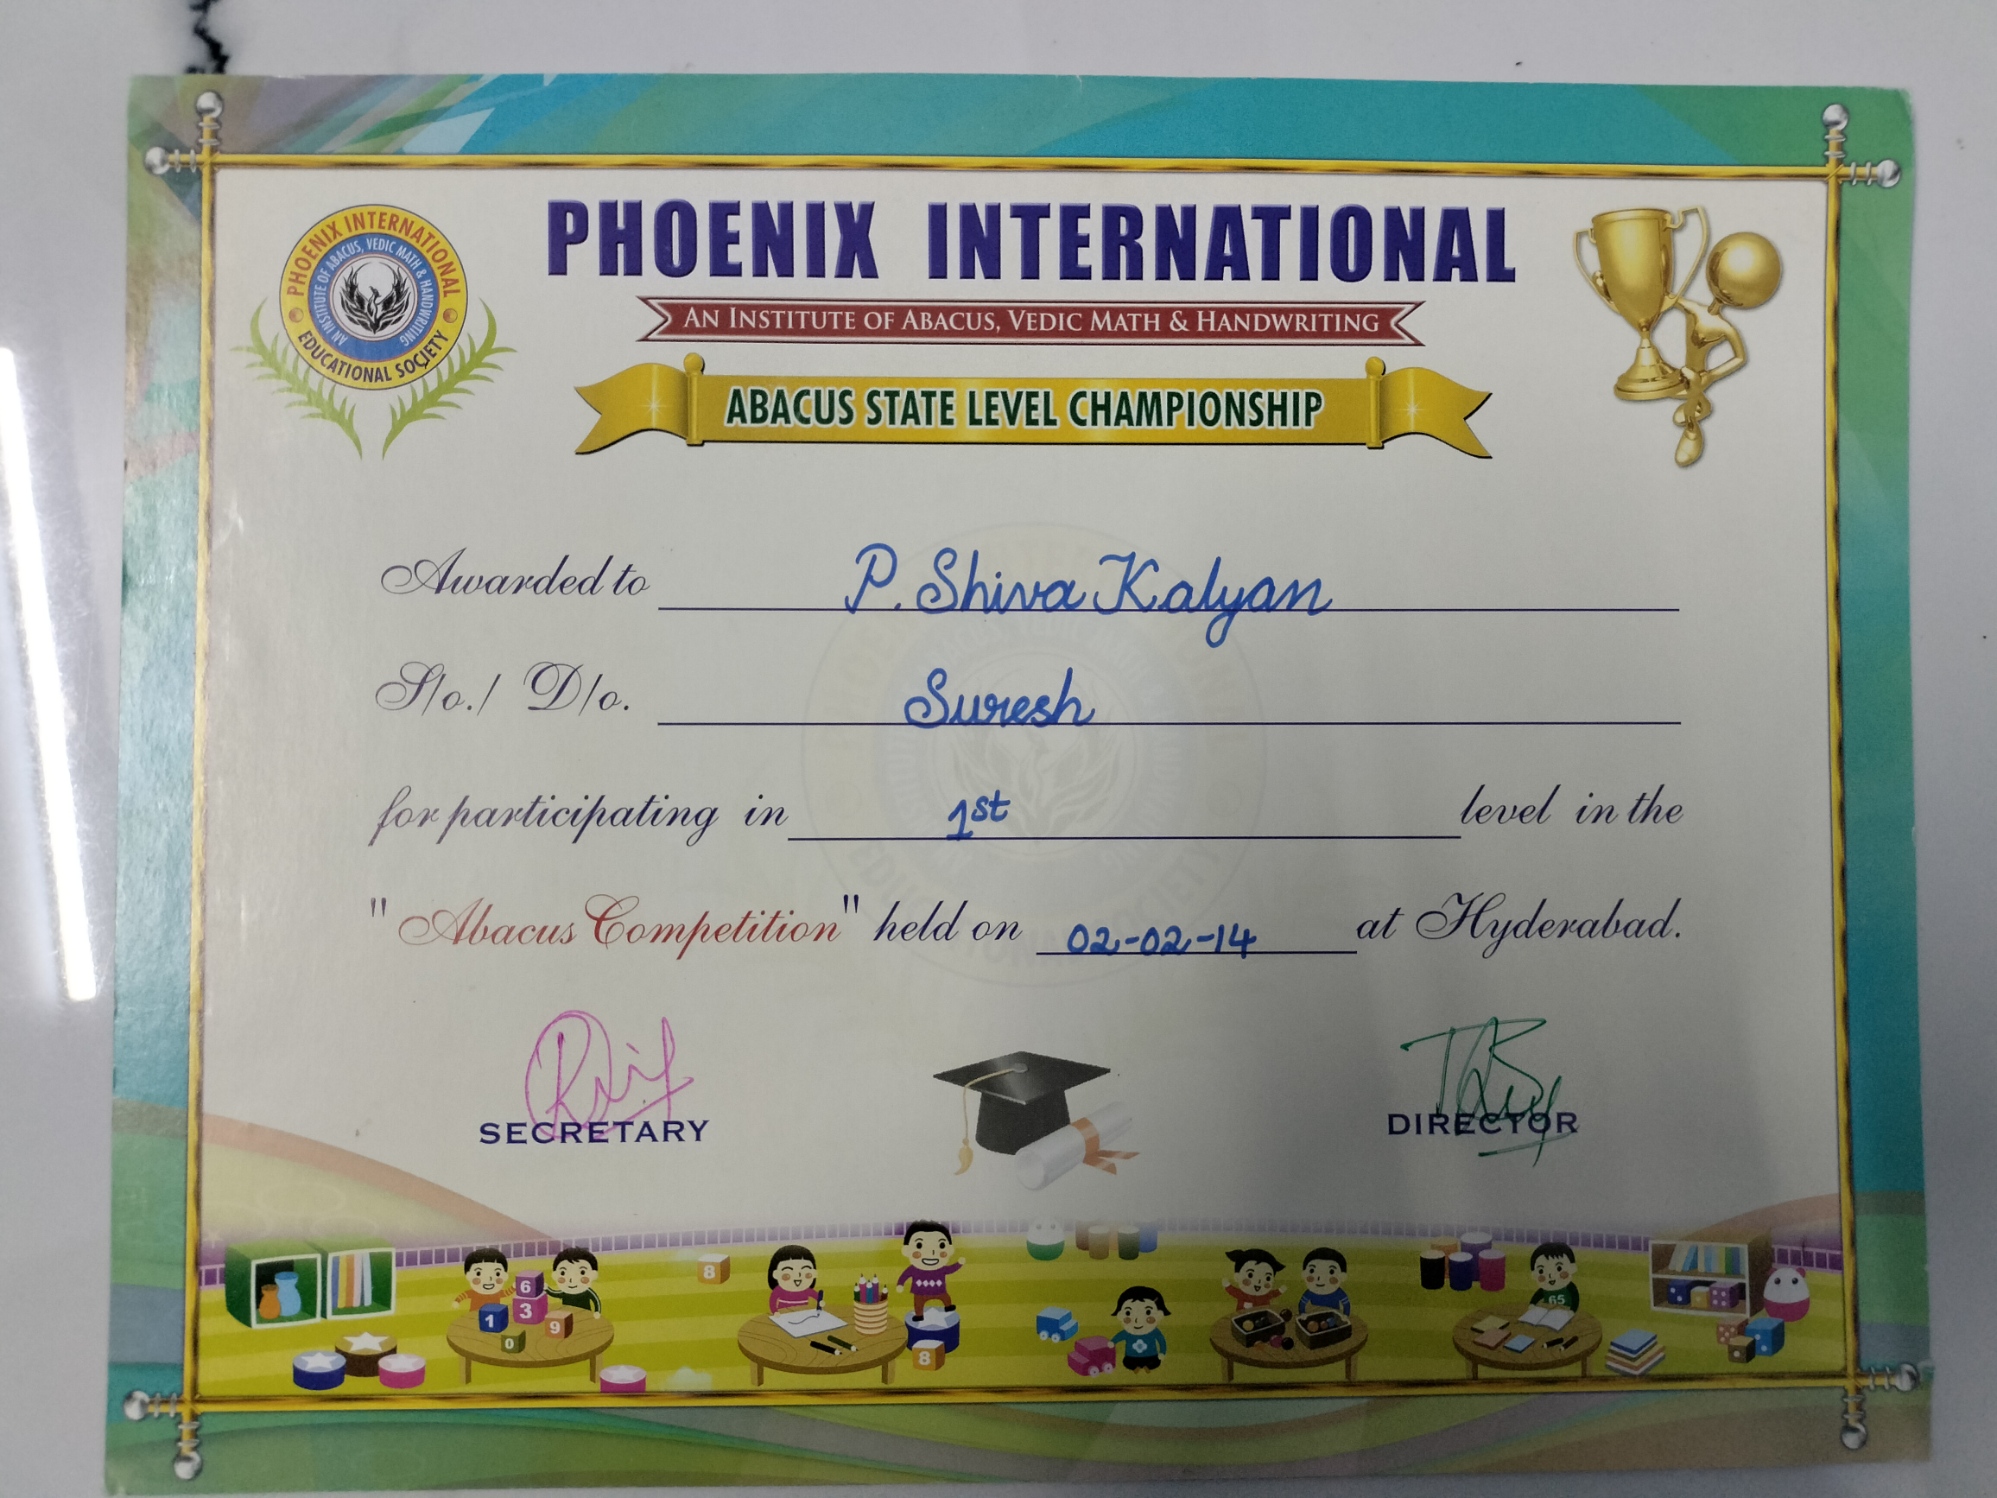 PHOENIX INTERNATIONAL
AN INSTITUTE OF ABACUS, VEDIC MATH & HANDWRITING
EDUCATIONAL SOCIETY
PHOENIX INTERNATIONAL
AN INSTITUTE OF ABACUS, VEDIC MATH & HANDWRITING
ABACUS STATE LEVEL CHAMPIONSHIP
Awarded to P. Shiva Kalyan
S/o./ D/o. Suresh
for participating in 1st level in the
"Abacus Competition" held on 02-02-14 at Hyderabad.
SECRETARY
DIRECTOR
8
6
3
1
9
0
8
65